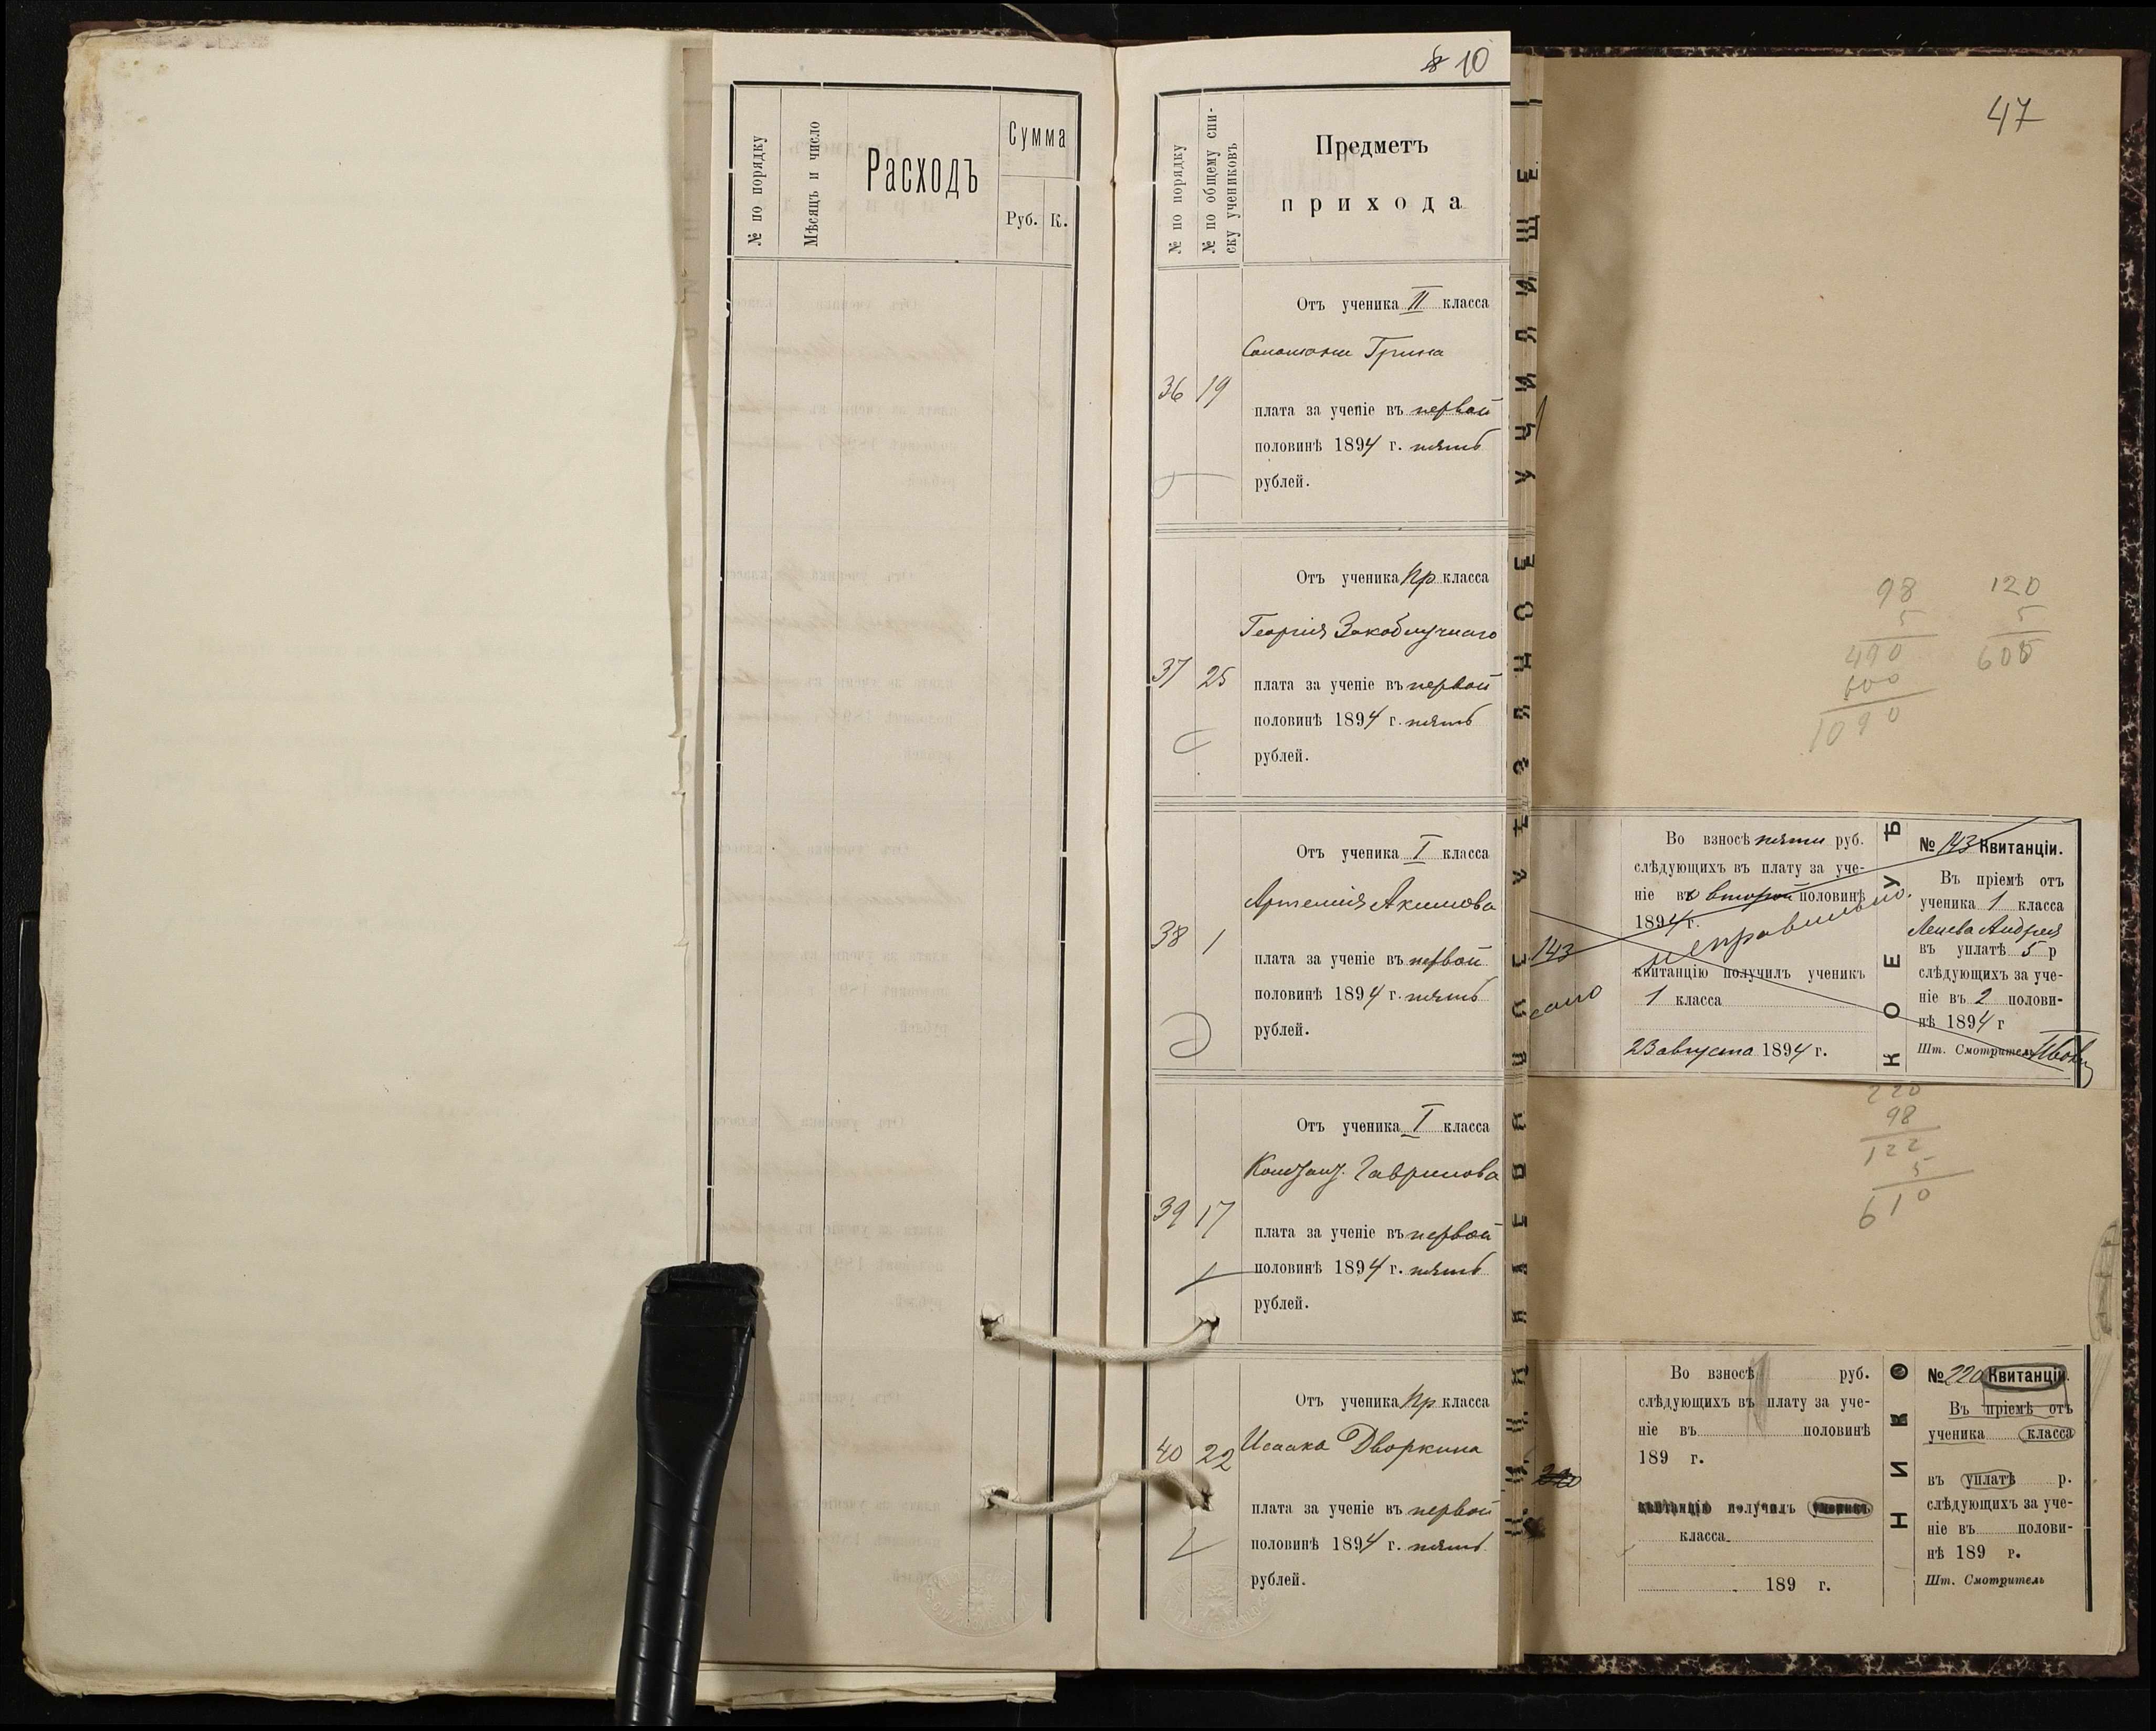 10
47
№ по порядку
Мѣсяцъ и число
Расходъ
Сумма
Руб. К.
№ по порядку
№ по общему спи-
ску учениковъ
Предметъ
прихода
Отъ ученика II класса
Соломона Грина
36 19
плата за ученіе въ первой
половинѣ 1894 г. пять
рублей.
Отъ ученика Пр класса
Георгія Закоблучнаго
37 25
плата за ученіе въ первой
половинѣ 1894 г. пять
рублей.
Отъ ученика I класса
Артемія Акимова
38 1
плата за ученіе въ первой
половинѣ 1894 г. пять
рублей.
Отъ ученика I класса
Констант. Гаврилова
39 17
плата за ученіе въ первой
половинѣ 1894 г. пять
рублей.
Отъ ученика Пр класса
Исаака Дворкина
40 22
плата за ученіе въ первой
половинѣ 1894 г. пять
рублей.
98
5
490
600
1090
120
5
600
143
Во взносѣ пяти руб.
слѣдующихъ въ плату за уче-
ніе во второй половинѣ
1894 г.
неправильно.
квитанцію получилъ ученикъ
1 класса
23 августа 1894 г.
КОЕ У Ѣ
№ 143 Квитанціи.
Въ пріемѣ отъ
ученика 1 класса
Андрея
въ уплатѣ 5 р
слѣдующихъ за уче-
ніе въ 2 полови-
нѣ 1894 г
Шт. Смотритель
220
98
122
5
610
220
Во взносѣ руб.
слѣдующихъ въ плату за уче-
ніе въ половинѣ
189 г.
квитанцію получилъ ученикъ
класса
189 г.
НИКО
№ 220 Квитанціи.
Въ пріемѣ отъ
ученика класса
въ уплатѣ р.
слѣдующихъ за уче-
ніе въ полови-
нѣ 189 г.
Шт. Смотритель